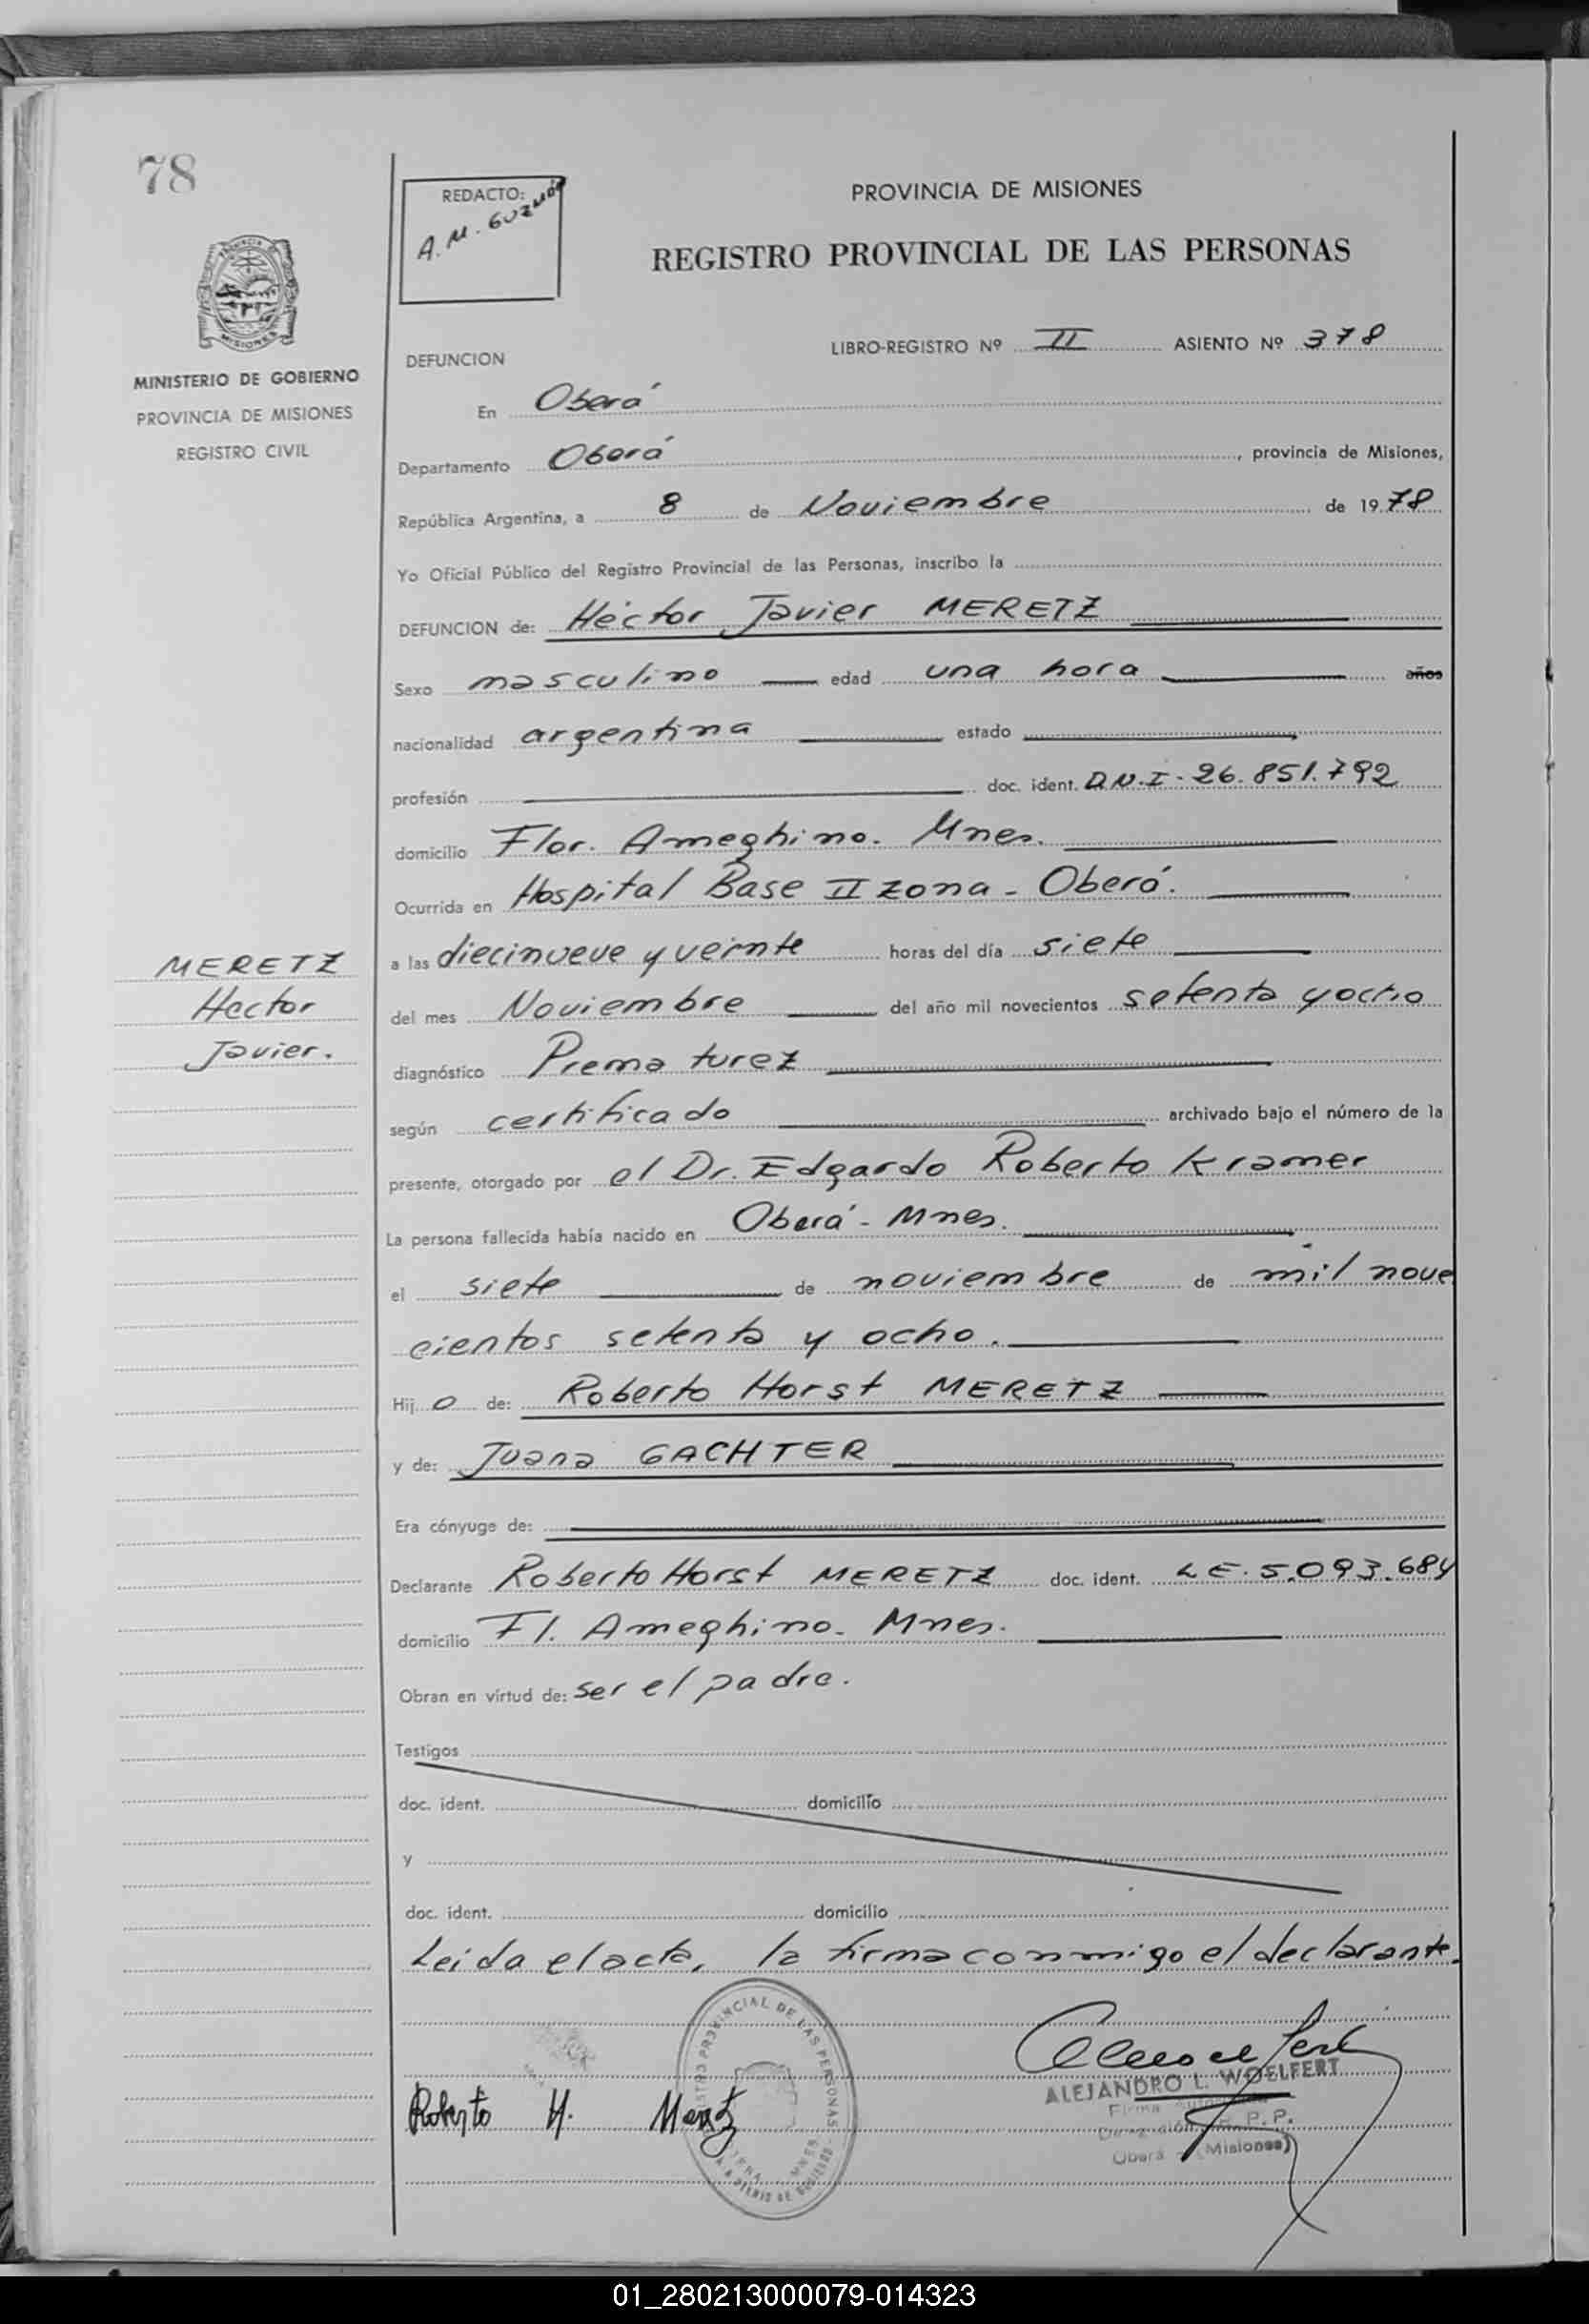 78
REDACTO:
A. M. GUZMÁN
PROVINCIA DE MISIONES
REGISTRO PROVINCIAL DE LAS PERSONAS
MISIONES
MINISTERIO DE GOBIERNO
PROVINCIA DE MISIONES
REGISTRO CIVIL
LIBRO-REGISTRO Nº II ASIENTO Nº 378
DEFUNCION
En Oberá
Departamento Oberá, provincia de Misiones,
República Argentina, a 8 de Noviembre de 1978
Yo Oficial Público del Registro Provincial de las Personas, inscribo la
DEFUNCION de: Héctor Javier MERETZ
Sexo masculino edad una hora años
nacionalidad argentina estado
profesión doc. ident. D.N.I. 26.851.792
domicilio Flor. Ameghino. Mnes.
Ocurrida en Hospital Base II zona - Oberá.
a las diecinueve y veinte horas del día siete
del mes Noviembre del año mil novecientos setenta y ocho
MERETZ
Hector
Javier.
diagnóstico Prematurez
según certificado archivado bajo el número de la
presente, otorgado por el Dr. Edgardo Roberto Kramer
La persona fallecida había nacido en Oberá - Mnes.
el siete de noviembre de mil nove
cientos setenta y ocho.
Hijo de: Roberto Horst MERETZ
y de: Juana GACHTER
Era cónyuge de:
Declarante Roberto Horst MERETZ doc. ident. L.E. 5.093.684
domicilio Fl. Ameghino. Mnes.
Obran en virtud de: ser el padre.
Testigos
doc. ident. domicilio
y
doc. ident. domicilio
Leida el acta, la firma conmigo el declarante.
PROVINCIAL DE LAS PERSONAS
Roberto H. Meretz
ALEJANDRO L. WOELFERT
Firma
R. P. P.
Oberá (Misiones)
01_280213000079-014323